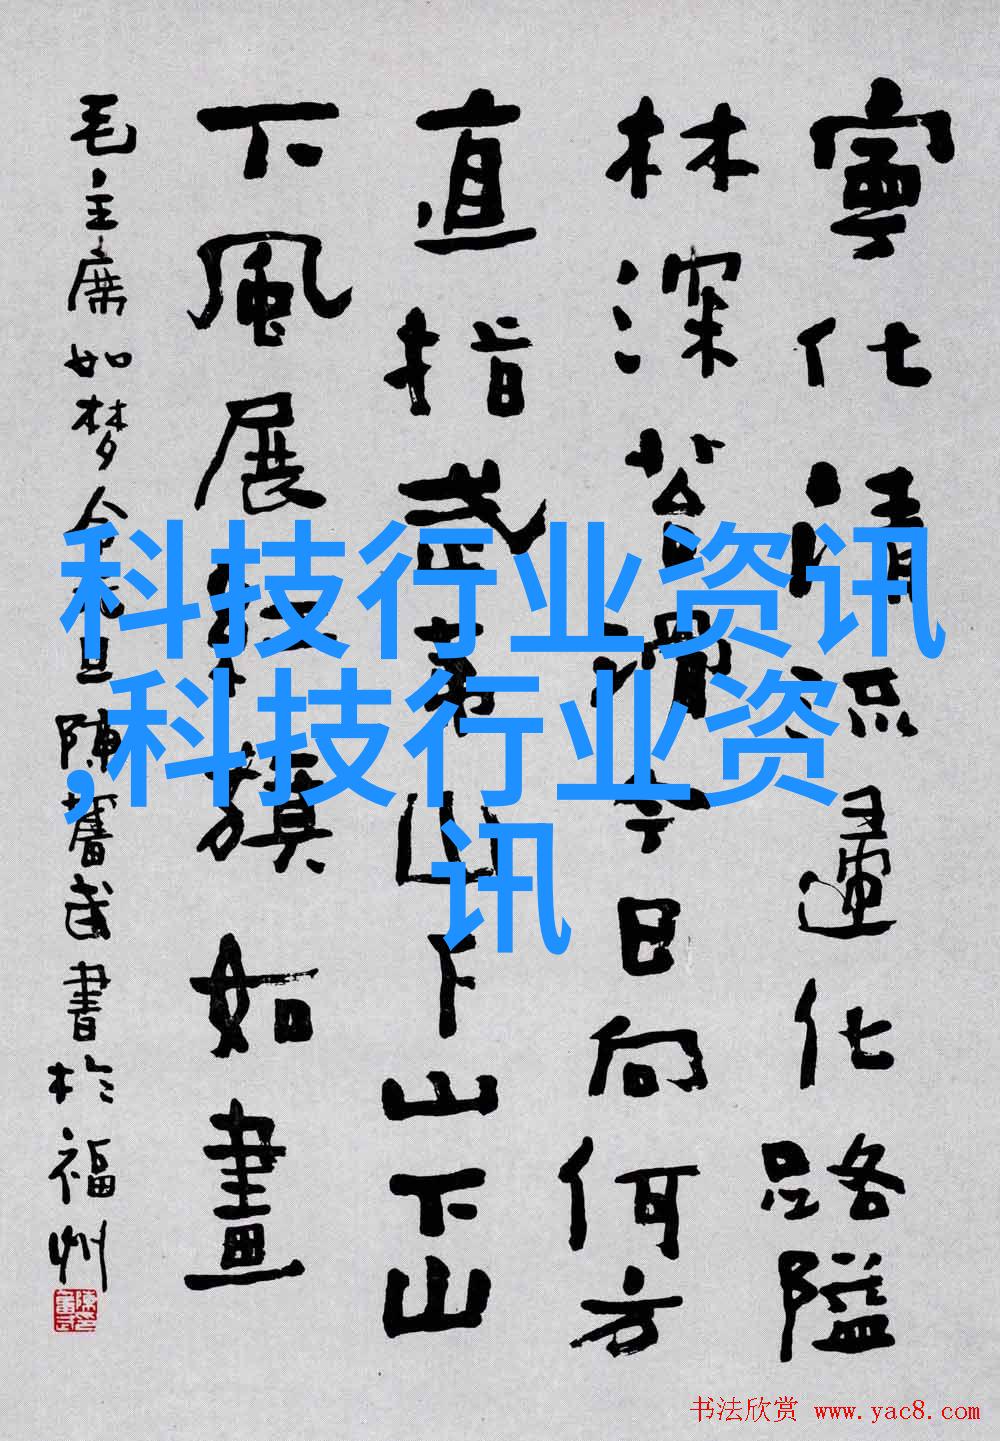 寧化清流歸化路隘
林深苔滑今日向何方
直指武夷山下山下山
下風展紅旗如畫
毛主席如梦令元旦陳奮武書於福州
科技行业资讯
,科技行业资
讯
书法欣赏 www.yac8.com